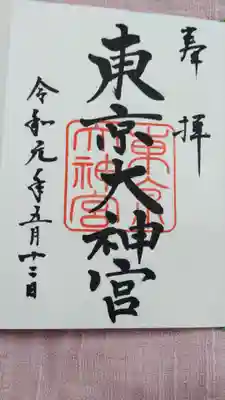 奉拝
東京大神宮
東京大神宮
令和元年五月十二日